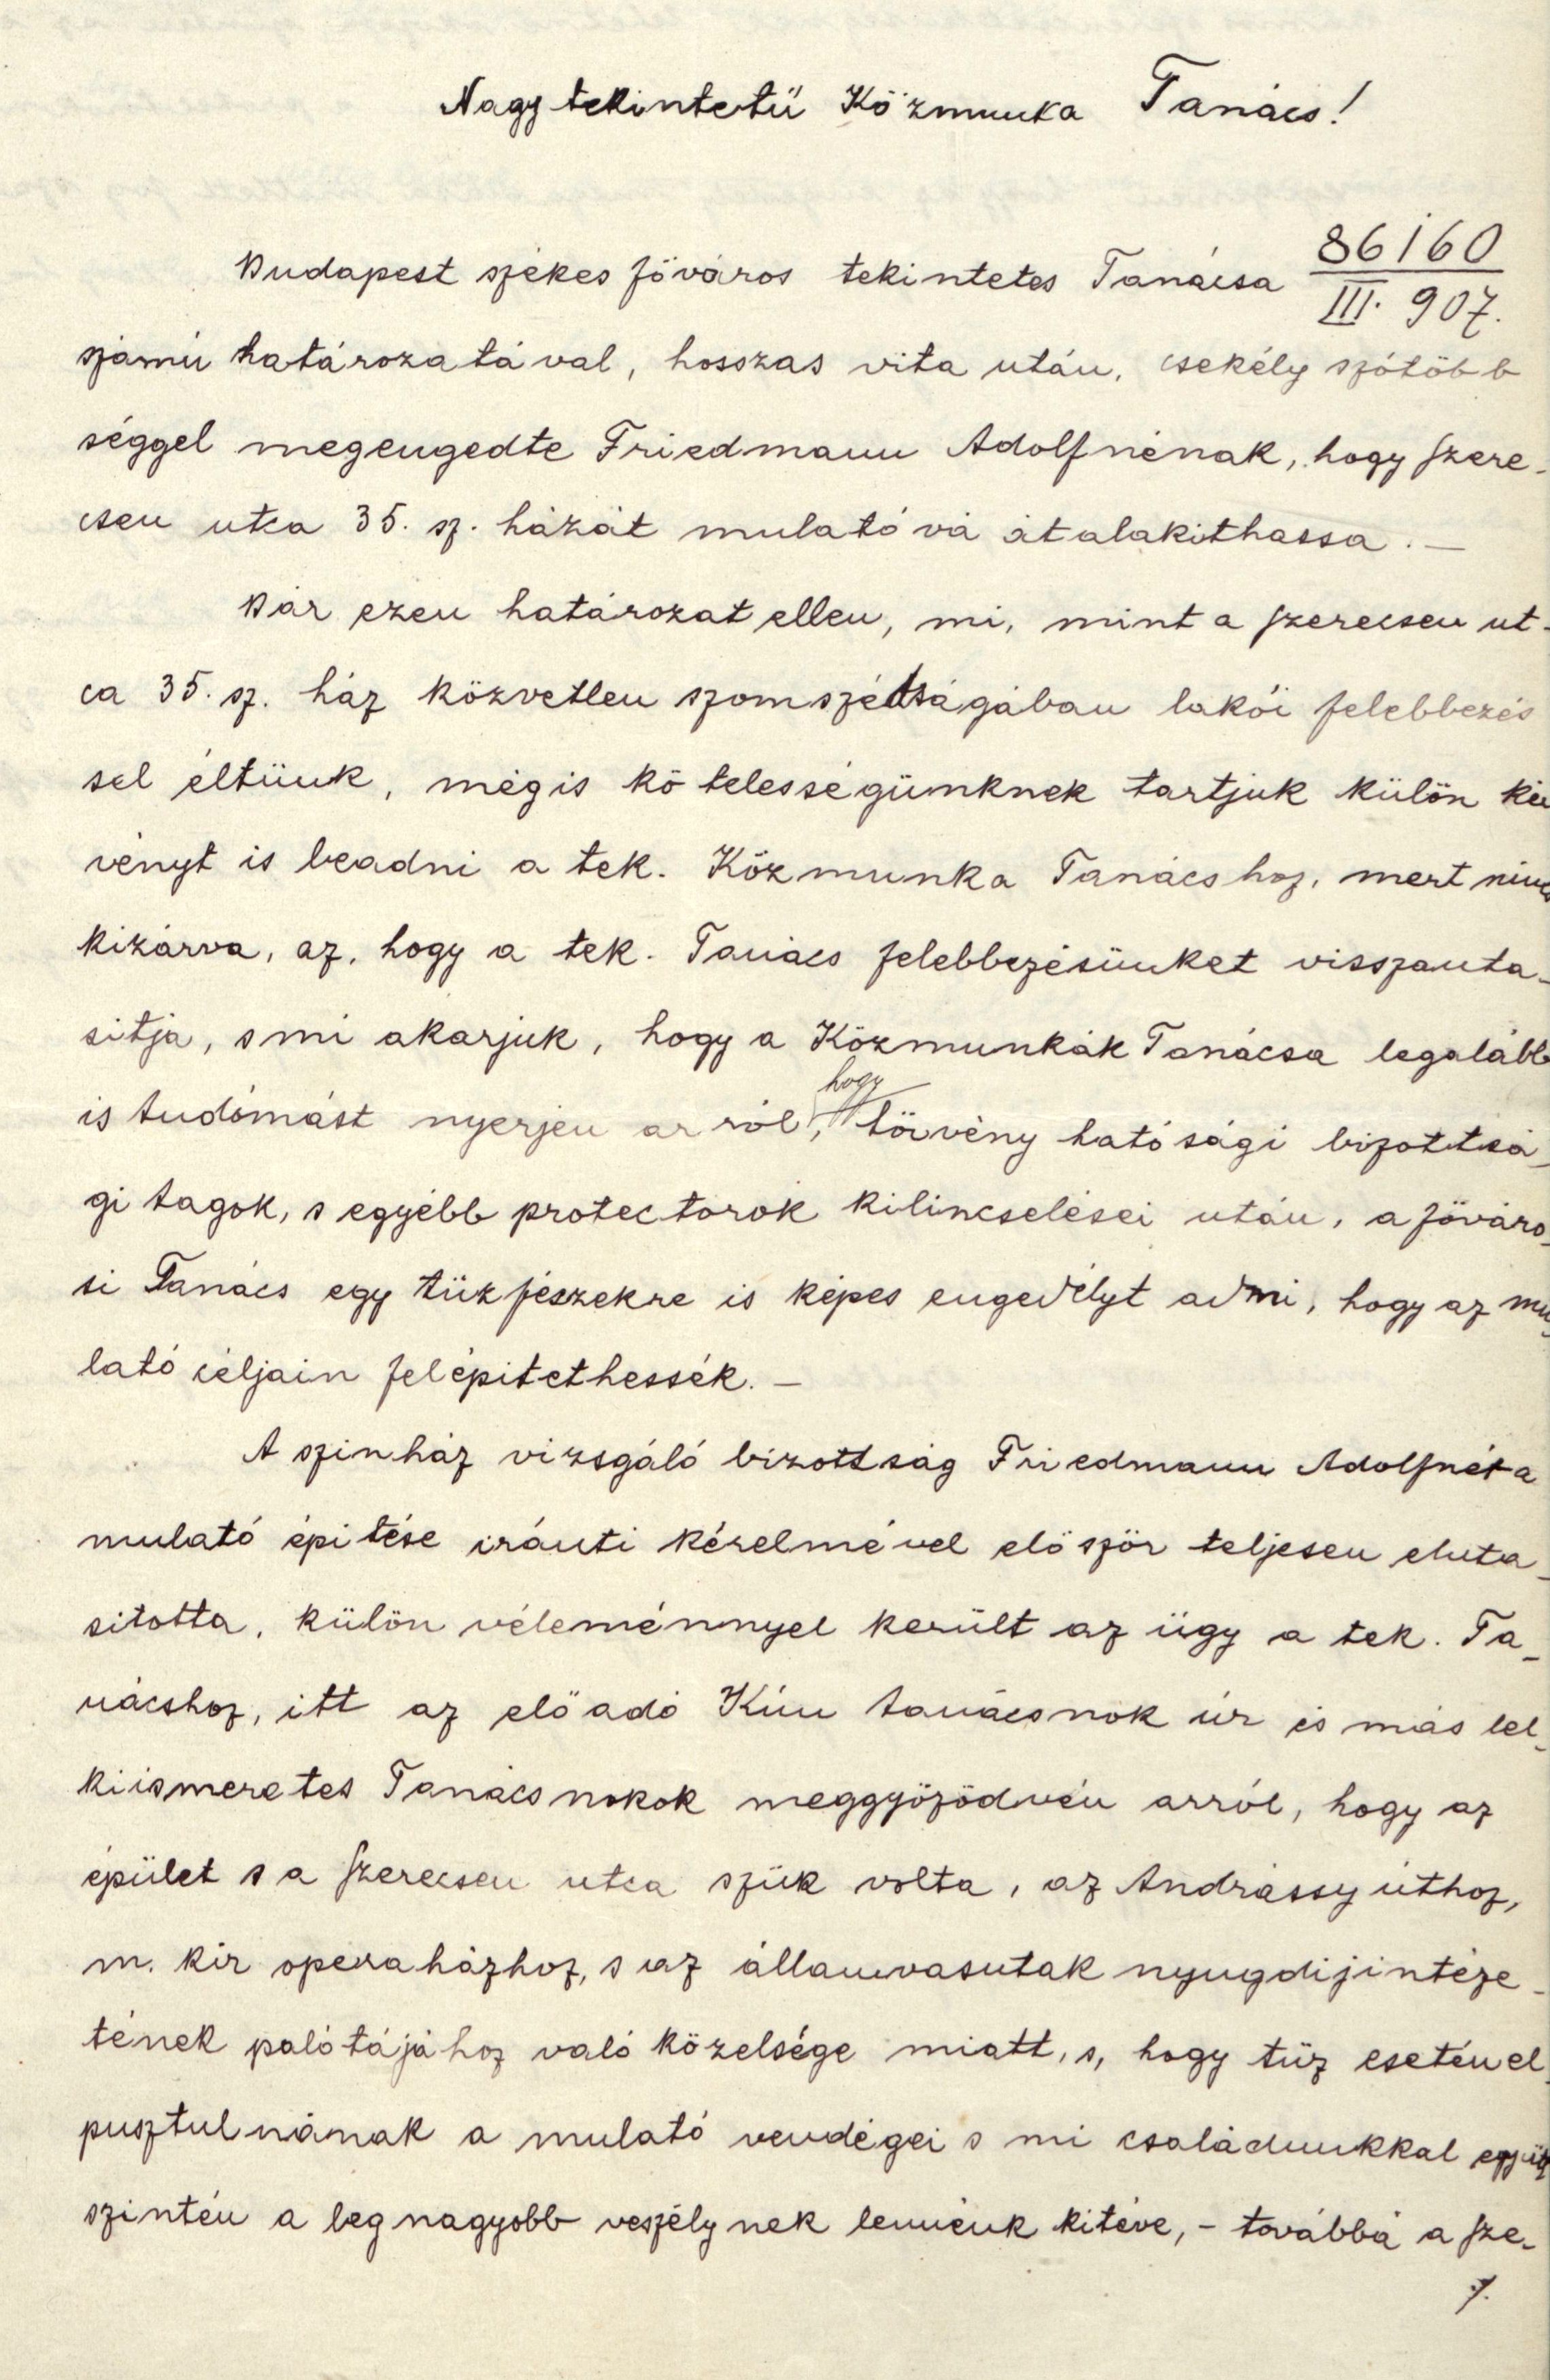 Nagytekintetü Közmunka Tanács!
Budapest székes főváros tekintetes Tanácsa 86160/III. 907.
számú határozatával, hosszas vita után, csekély szótöbb
séggel megengedte Friedmann Adolfnénak, hogy szere-
csen utca 35. sz. házát mulatóvá átalakithassa. —
Bár ezen határozat ellen, mi, mint a szerecsen ut-
ca 35. sz. ház közvetlen szomszédságában lakói felebbezés
sel éltünk, mégis kötelességünknek tartjuk külön kér
vényt is beadni a tek. Közmunka Tanácshoz, mert nincs
kizárva, az, hogy a tek. Tanács felebbezésünket visszauta-
sitja, s mi akarjuk, hogy a Közmunkák Tanácsa legalább
is tudomást nyerjen arról, hogy törvény hatósági bizottsá-
gi tagok, s egyébb protectorok kilincselései után, a főváro-
si Tanács egy tüzfészekre is képes engedélyt adni, hogy az mu-
lató céljain felépitethessék. —
A szinház vizsgáló bizottság Friedmann Adolfnét a
mulató épitése iránti kérelmével először teljesen eluta-
sitotta, külön véleménnyel került az ügy a tek. Ta-
nácshoz, itt az előadó Kún tanácsnok úr és más lel-
kiismeretes Tanácsnokok meggyőződvén arról, hogy az
épület s a szerecsen utca szük volta, az Andrássy úthoz,
m. kir operaházhoz, s az államvasutak nyugdijintéze-
tének palotájához való közelsége miatt, s, hogy tüz esetén el-
pusztulnának a mulató vendégei s mi családunkkal együtt
szintén a legnagyobb veszélynek lennénk kitéve, - továbbá a sze-
./.